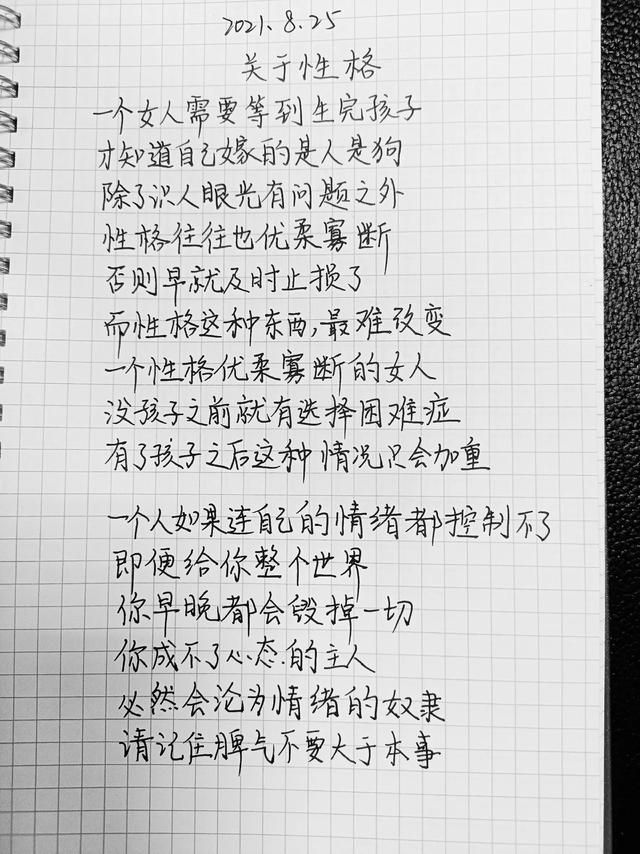 2021.8.25
关于性格
一个女人需要等到生完孩子
才知道自己嫁的是人是狗
除了识人眼光有问题之外
性格往往也优柔寡断
否则早就及时止损了
而性格这种东西,最难改变
一个性格优柔寡断的女人
没孩子之前就有选择困难症
有了孩子之后这种情况只会加重
一个人如果连自己的情绪都控制不了
即便给你整个世界
你早晚都会毁掉一切
你成不了心态的主人
必然会沦为情绪的奴隶
请记住脾气不要大于本事